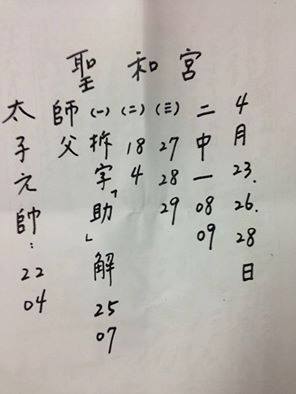 聖和宮
太子元帥：22 04
師父
(一) 拆字「助」解 25 07
(二) 18 4
(三) 27 28 29
二中一 08 09
4月23.26.28日